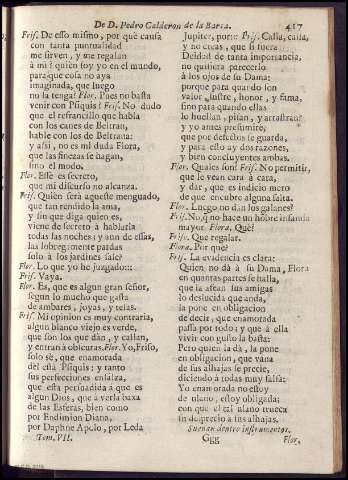 De D. Pedro Calderon de la Barca. 417
Fris. De esso mismo, por què causa
con tanta puntualidad
me sirven, y me regalan
à mi? quien soy yo en el mundo,
para que cosa no aya
imaginada, que luego
no la tenga? Flor. Pues no basta
venir con Psiquis? Fris. No dudo
que el refrancillo que habla
con los canes de Beltran,
hable con los de Beltrana;
y assi, no es mi duda Flora,
que las finezas se hagan,
sino el modo.
Flor. Esse es secreto,
que mi discurso no alcanza.
Fris. Quien serà aqueste menguado,
que tan rendido la ama,
y sin que diga quien es,
viene de secreto à hablarla
todas las noches; y aun de essas,
las lobregamente pardas
solo à los jardines sale?
Flor. Lo que yo he juzgado:::
Fris. Vaya.
Flor. Es, que es algun gran señor,
segun lo mucho que gasta
de ambares, joyas, y telas.
Fris. Mi opinion es muy contraria,
algun blanco viejo es verde,
que son los que dàn, y callan,
y entran à obscuras. Flor. Yo, Friso,
solo sè, que enamorada
dèl està Psiquis; y tanto
sus perfecciones ensalza,
que està persuadida à que es
algun Dios, que à verla baxa
de las Esferas, bien como
por Endimion Diana,
por Daphne Apolo, por Leda
Tom. VII.
Jupiter, porte Fris. Calla, calla,
y no creas, que si fuera
Deidad de tanta importancia,
no quisiera parecerlo
à los ojos de su Dama;
porque para quando son
valor, lustre, honor, y fama,
sino para quando ellas
lo huellan, pisan, y arrastran?
y yo antes presumirè,
que por defectos se guarda,
y para esto ay dos razones,
y bien concluyentes ambas.
Flor. Quales son? Fris. No permitir,
que le vean cara à cara,
y dar, que es indicio mero
de que encubre alguna falta.
Flor. Luego no dàn los galanes?
Fris. No, q̃ no hace un hõbre infamia
mayor. Flora. Què?
Fris. Que regalar.
Flora. Por què?
Fris. La evidencia es clara:
Quien no dà à su Dama, Flora
en quantas partes se halla,
que la assean sus amigas
lo deslucida que anda,
la pone en obligacion
de decir, que enamorada
passa por todo; y que à ella
vivir con gusto la basta:
Pero quien la dà, la pone
en obligacion, que vana
de sus alhajas se precie,
diciendo à todas muy falsa:
Yo enamorada no estoy
de ulano, estoy obligada;
con que el tal ulano trueca
su desprecio à sus alhajas.
Suenan dentro instrumentos.
Ggg Flor,